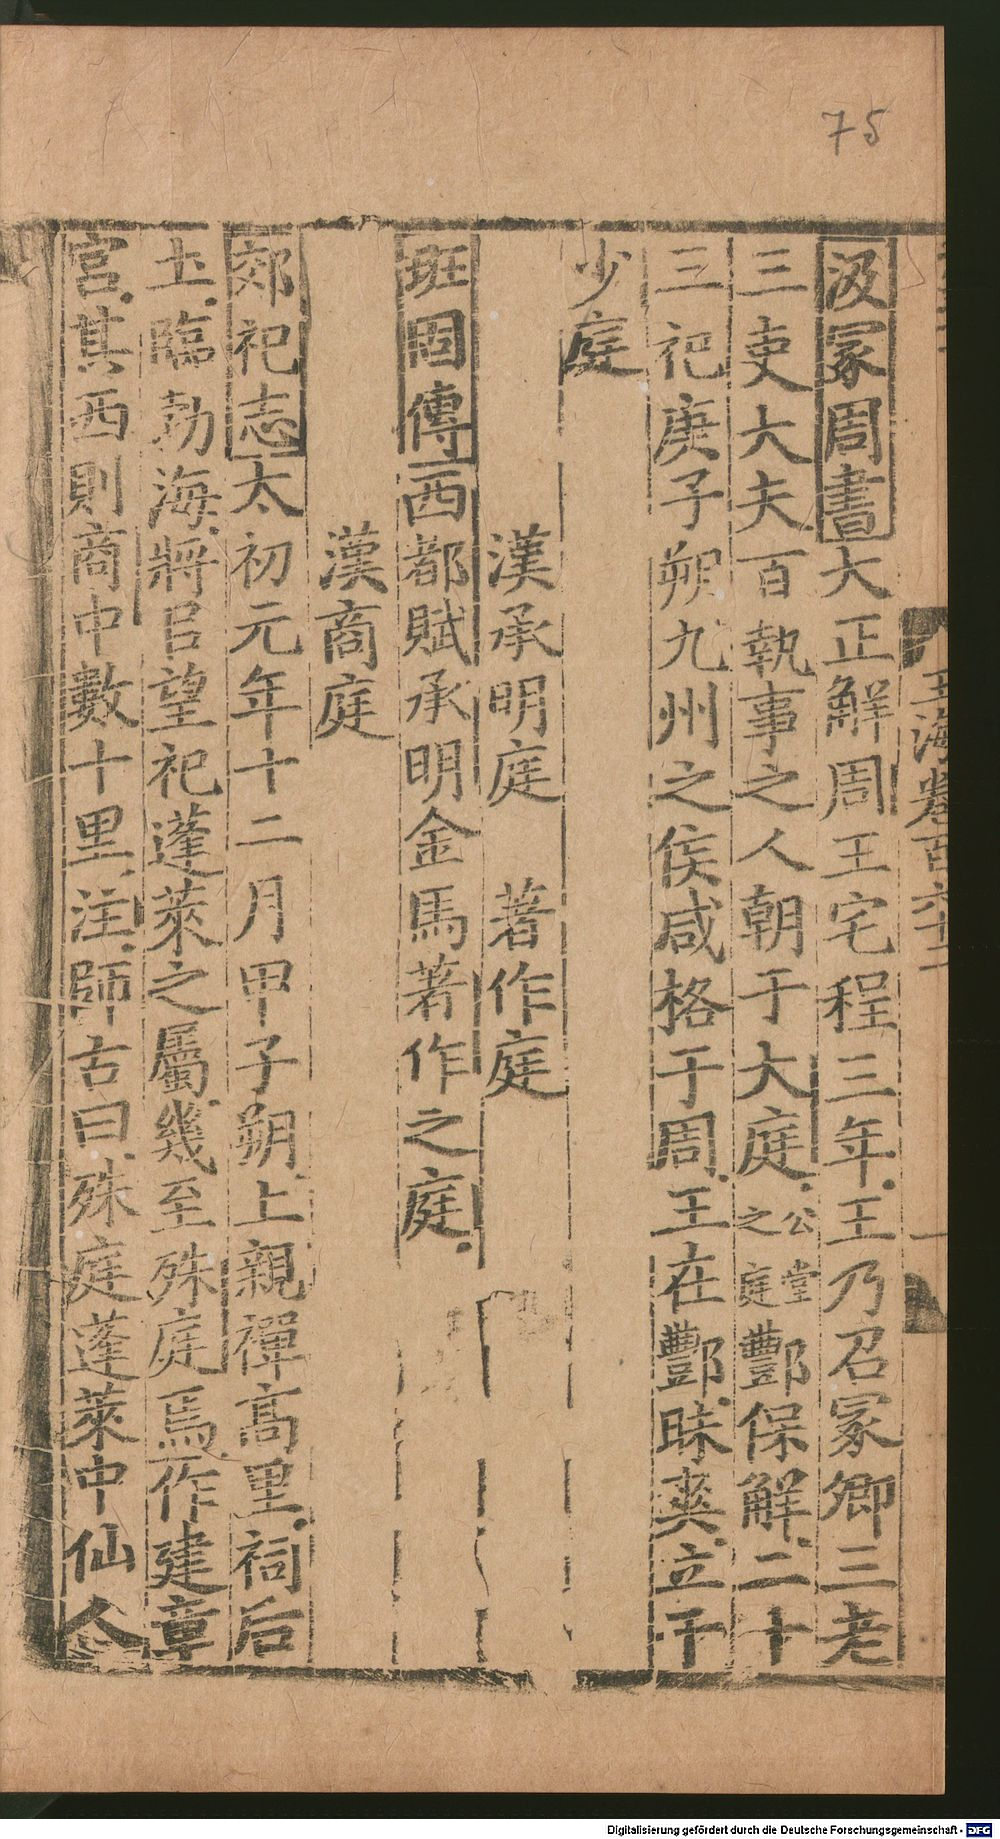 75
汲冢周書大正解周王宅程三年王乃召冢卿三老
三吏大夫百執事之人朝于大庭公堂之庭酆保解二十
三祀庚子朔九州之侯咸格于周王在酆昧爽立于
少庭
漢承明庭 著作庭
班固傳西都賦承明金馬著作之庭
漢商庭
郊祀志太初元年十二月甲子朔上親禪高里祠后
土臨勃海將以望祀蓬萊之屬幾至殊庭焉作建章
宮其西則商中數十里注師古曰殊庭蓬萊中仙人
玉海卷百六十二
一
Digitalisierung gefördert durch die Deutsche Forschungsgemeinschaft - DFG